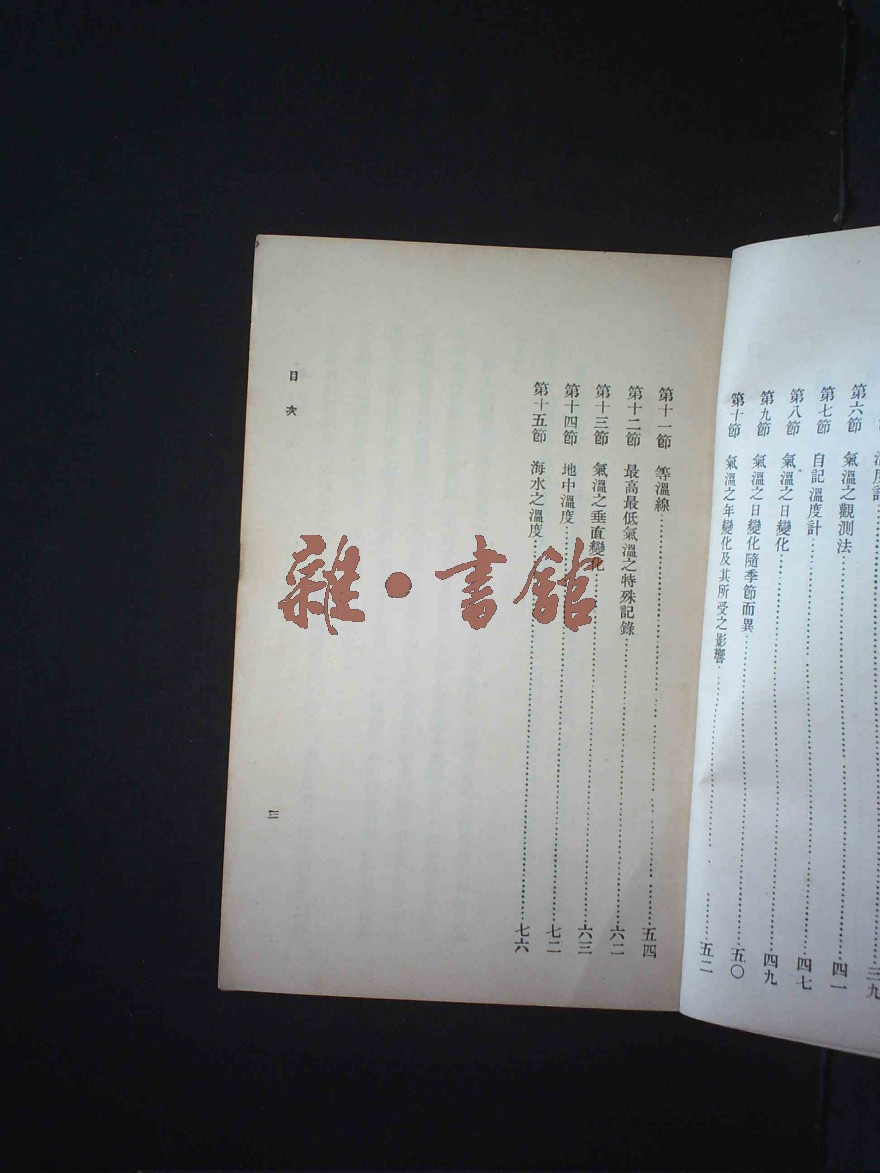 溫度計……三九
第六節 氣溫之觀測法……四一
第七節 自記溫度計……四七
第八節 氣溫之日變化……四九
第九節 氣溫之日變化隨季節而異……五〇
第十節 氣溫之年變化及其所受之影響……五二
第十一節 等溫線……五四
第十二節 最高最低氣溫之特殊記錄……六二
第十三節 氣溫之垂直變化……六三
第十四節 地中溫度……七二
第十五節 海水之溫度……七六
目次
三
雜·書館